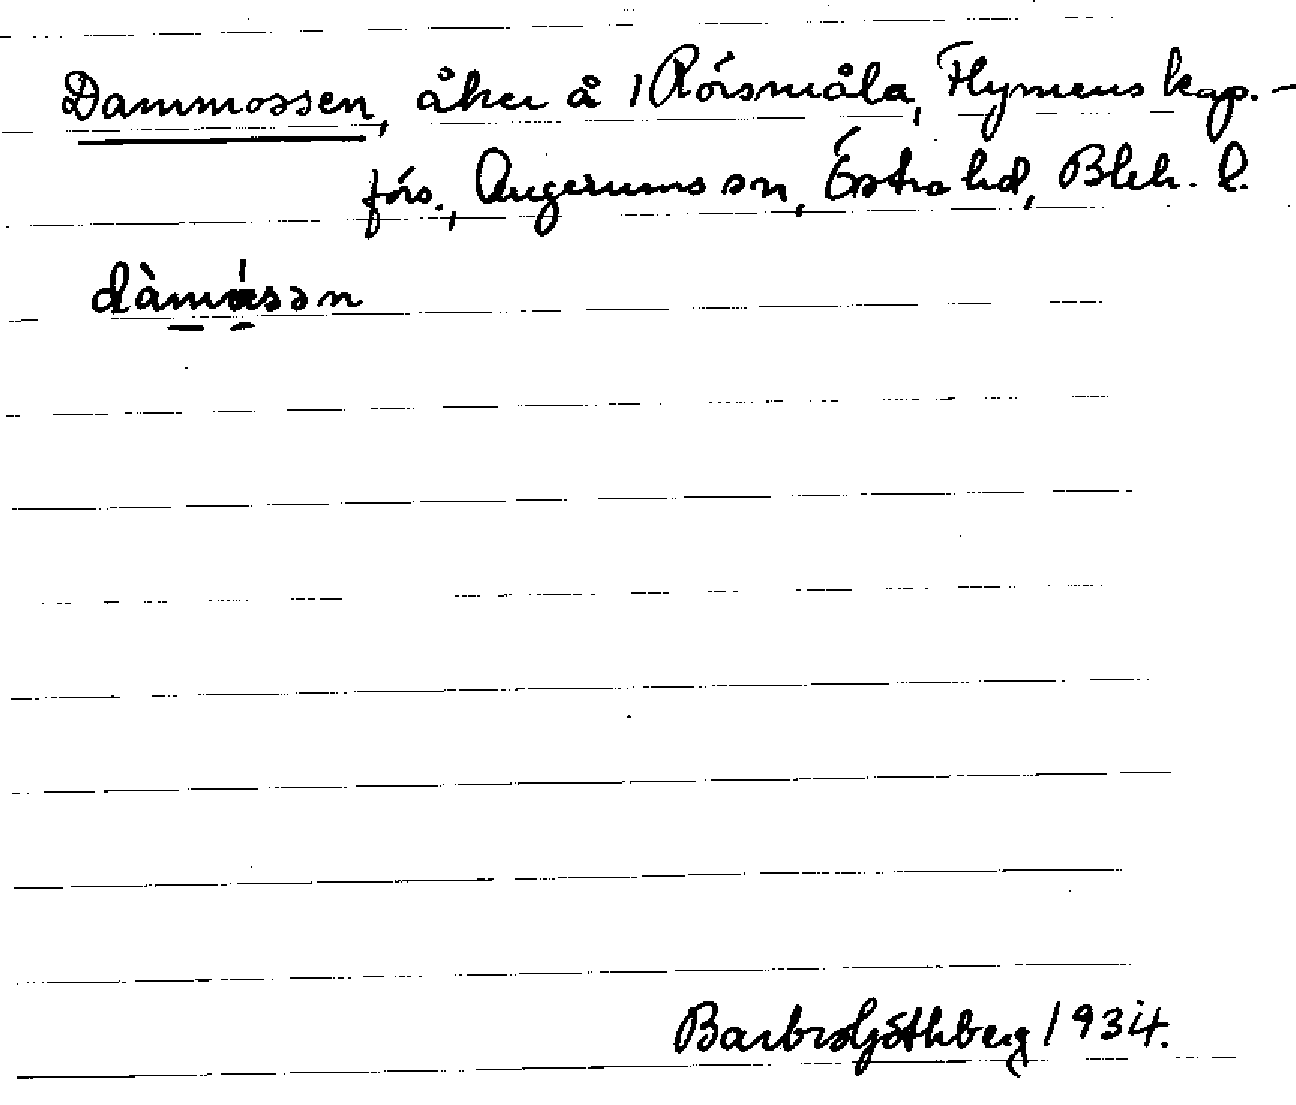 Dammossen, åker å 1 Rörsmåla, Flymens kap.-
förs., Augerums sn, Östra hd, Blek. l.
Barbro Göthberg 1934.